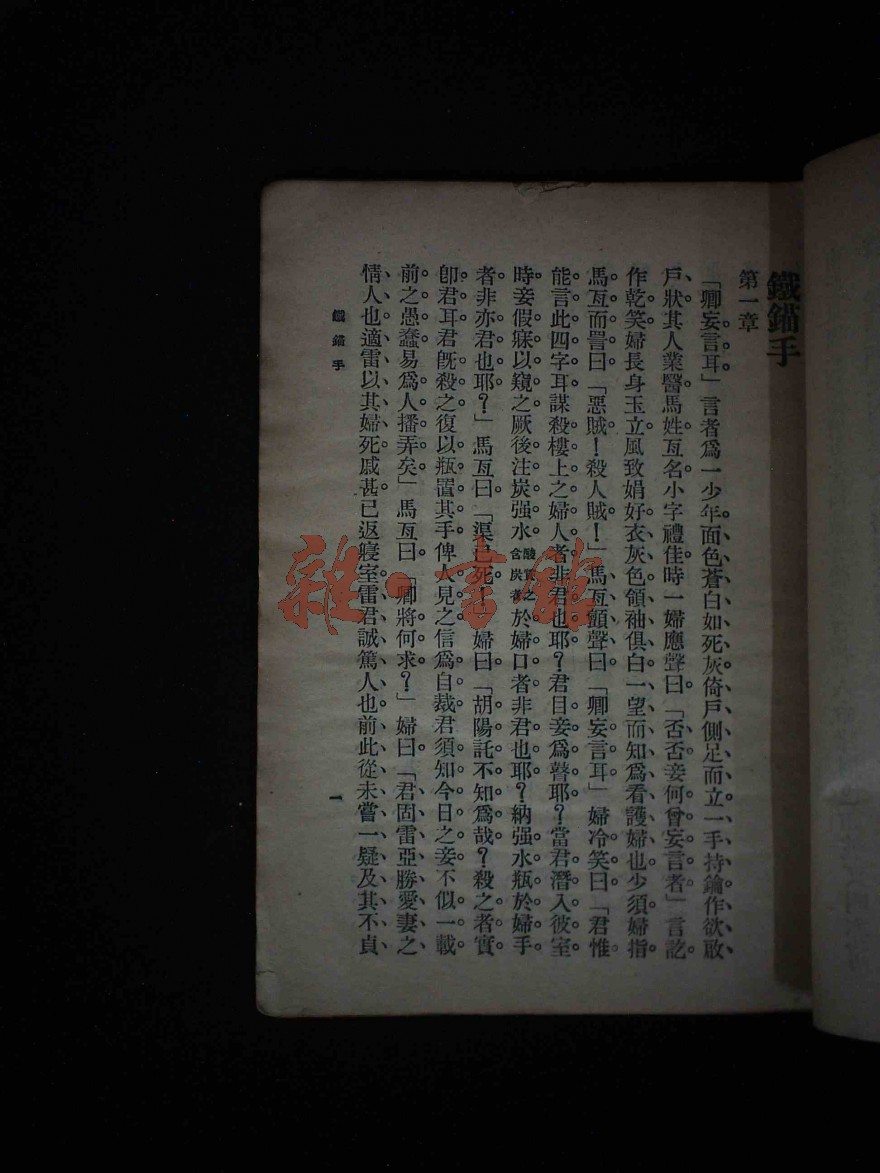 鐵錨手
第一章
「卿妄言耳」言者爲一少年面色蒼白如死灰倚戶側足而立一手持鑰作欲啟
戶狀其人業醫馬姓亙名小字禮佳時一婦應聲曰「否否妾何曾妄言者」言訖
作乾笑婦長身玉立風致娟好衣灰色領袖俱白一望而知爲看護婦也少須婦指
馬亙而詈曰「惡賊！殺人賊！」馬亙顫聲曰「卿妄言耳」婦冷笑曰「君惟
能言此四字耳謀殺樓上之婦人者非君也耶？君目妾爲瞽耶？當君潛入彼室
時妾假寐以窺之厥後注炭强水酸質之含炭者於婦口者非君也耶？納强水瓶於婦手
者非亦君也耶？」馬亙曰「渠已死！」婦曰「胡陽託不知爲哉？殺之者實
卽君耳君旣殺之復以瓶置其手俾人見之信爲自裁君須知今日之妾不似一載
前之愚蠢易爲人播弄矣」馬亙曰「卿將何求？」婦曰「君固雷亞勝愛妻之
情人也適雷以其婦死戚甚已返寢室雷君誠篤人也前此從未嘗一疑及其不貞
鐵錨手
一
雜·書館